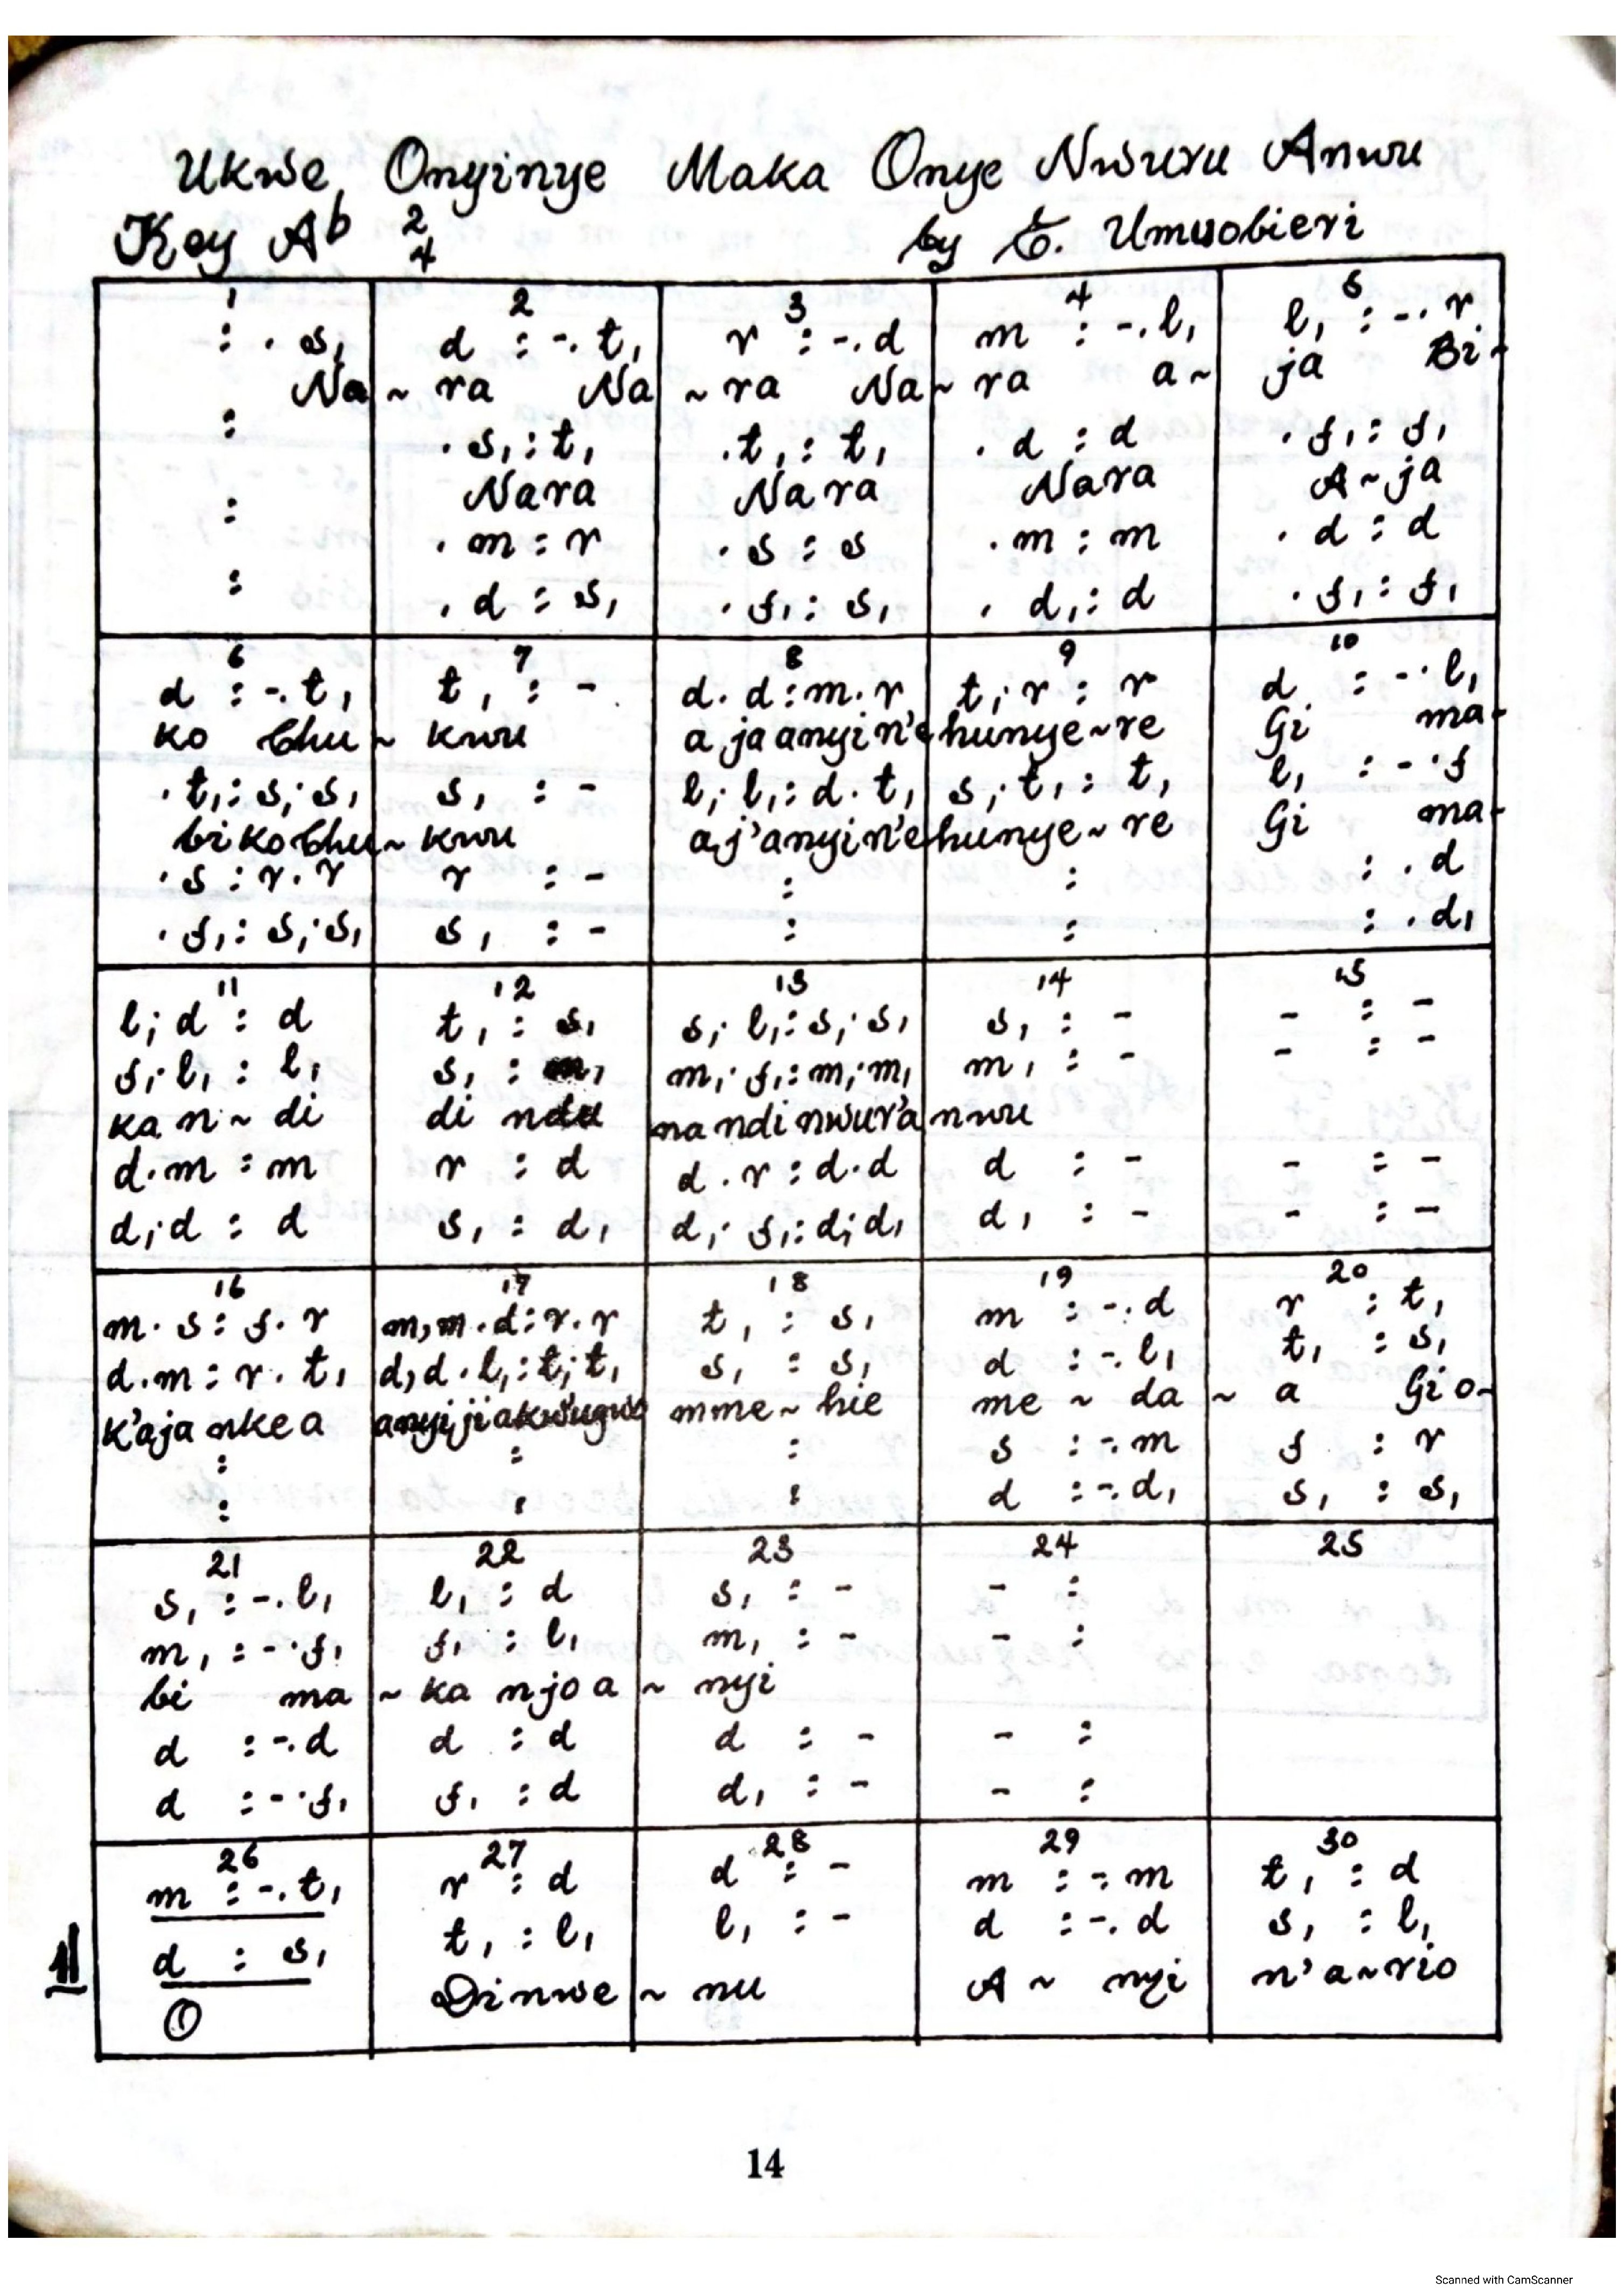 Ukwe, Onyinye Maka Onye Nwuru Anwu
Key Ab 2/4 by E. Umuobieri
1 2 3 4 5
: . s, d : -. t, r : -. d m : -. l, l, : -. r
Na ~ ra Na ~ ra Na ~ ra a ~ ja Bi-
: . s, : t, . t, : t, . d : d . f, : f,
Nara Nara Nara A ~ ja
: . m : r . s : s . m : m . d : d
: . d : s, . f, : s, . d, : d . f, : f,
6 7 8 9 10
d : -. t, t, : - d. d : m. r t,. r : r d : -. l,
ko Chu ~ kwu aja anyi n'e hunye ~ re Gi ma-
. t, : s,. s, s, : - l,. l, : d. t, s,. t, : t, l, : -. f
biko Chu ~ kwu aj'anyi n'e hunye ~ re Gi ma-
. s : r. r r : - : : : . d
. f, : s,. s, s, : - : : : . d,
11 12 13 14 15
l,. d : d t, : s, s,. l, : s,. s, s, : - - : -
f,. l, : l, s, : m, m,. f, : m,. m, m, : - - : -
ka n ~ di di ndu na ndi nwur'a nwu
d. m : m r : d d. r : d. d d : - - : -
d,. d : d s, : d, d,. f, : d,. d, d, : - - : -
16 17 18 19 20
m. s : f. r m, m. d : r. r t, : s, m : -. d r : t,
d. m : r. t, d, d. l, : t,. t, s, : s, d : -. l, t, : s,
k'aja nke a anyi ji akwugwo mme ~ hie me ~ da ~ a Gi o-
: : : s : -. m f : r
: : : d : -. d, s, : s,
21 22 23 24 25
s, : -. l, l, : d s, : - - :
m, : -. f, f, : l, m, : - - :
bi ma ~ ka njo a ~ nyi
d : -. d d : d d : - - :
d : -. f, f, : d d, : - - :
26 27 28 29 30
m : -. t, r : d d : - m : -. m t, : d
1| d : s, t, : l, l, : - d : -. d s, : l,
O Dinwe ~ nu A ~ nyi n'a ~ rio
14
Scanned with CamScanner